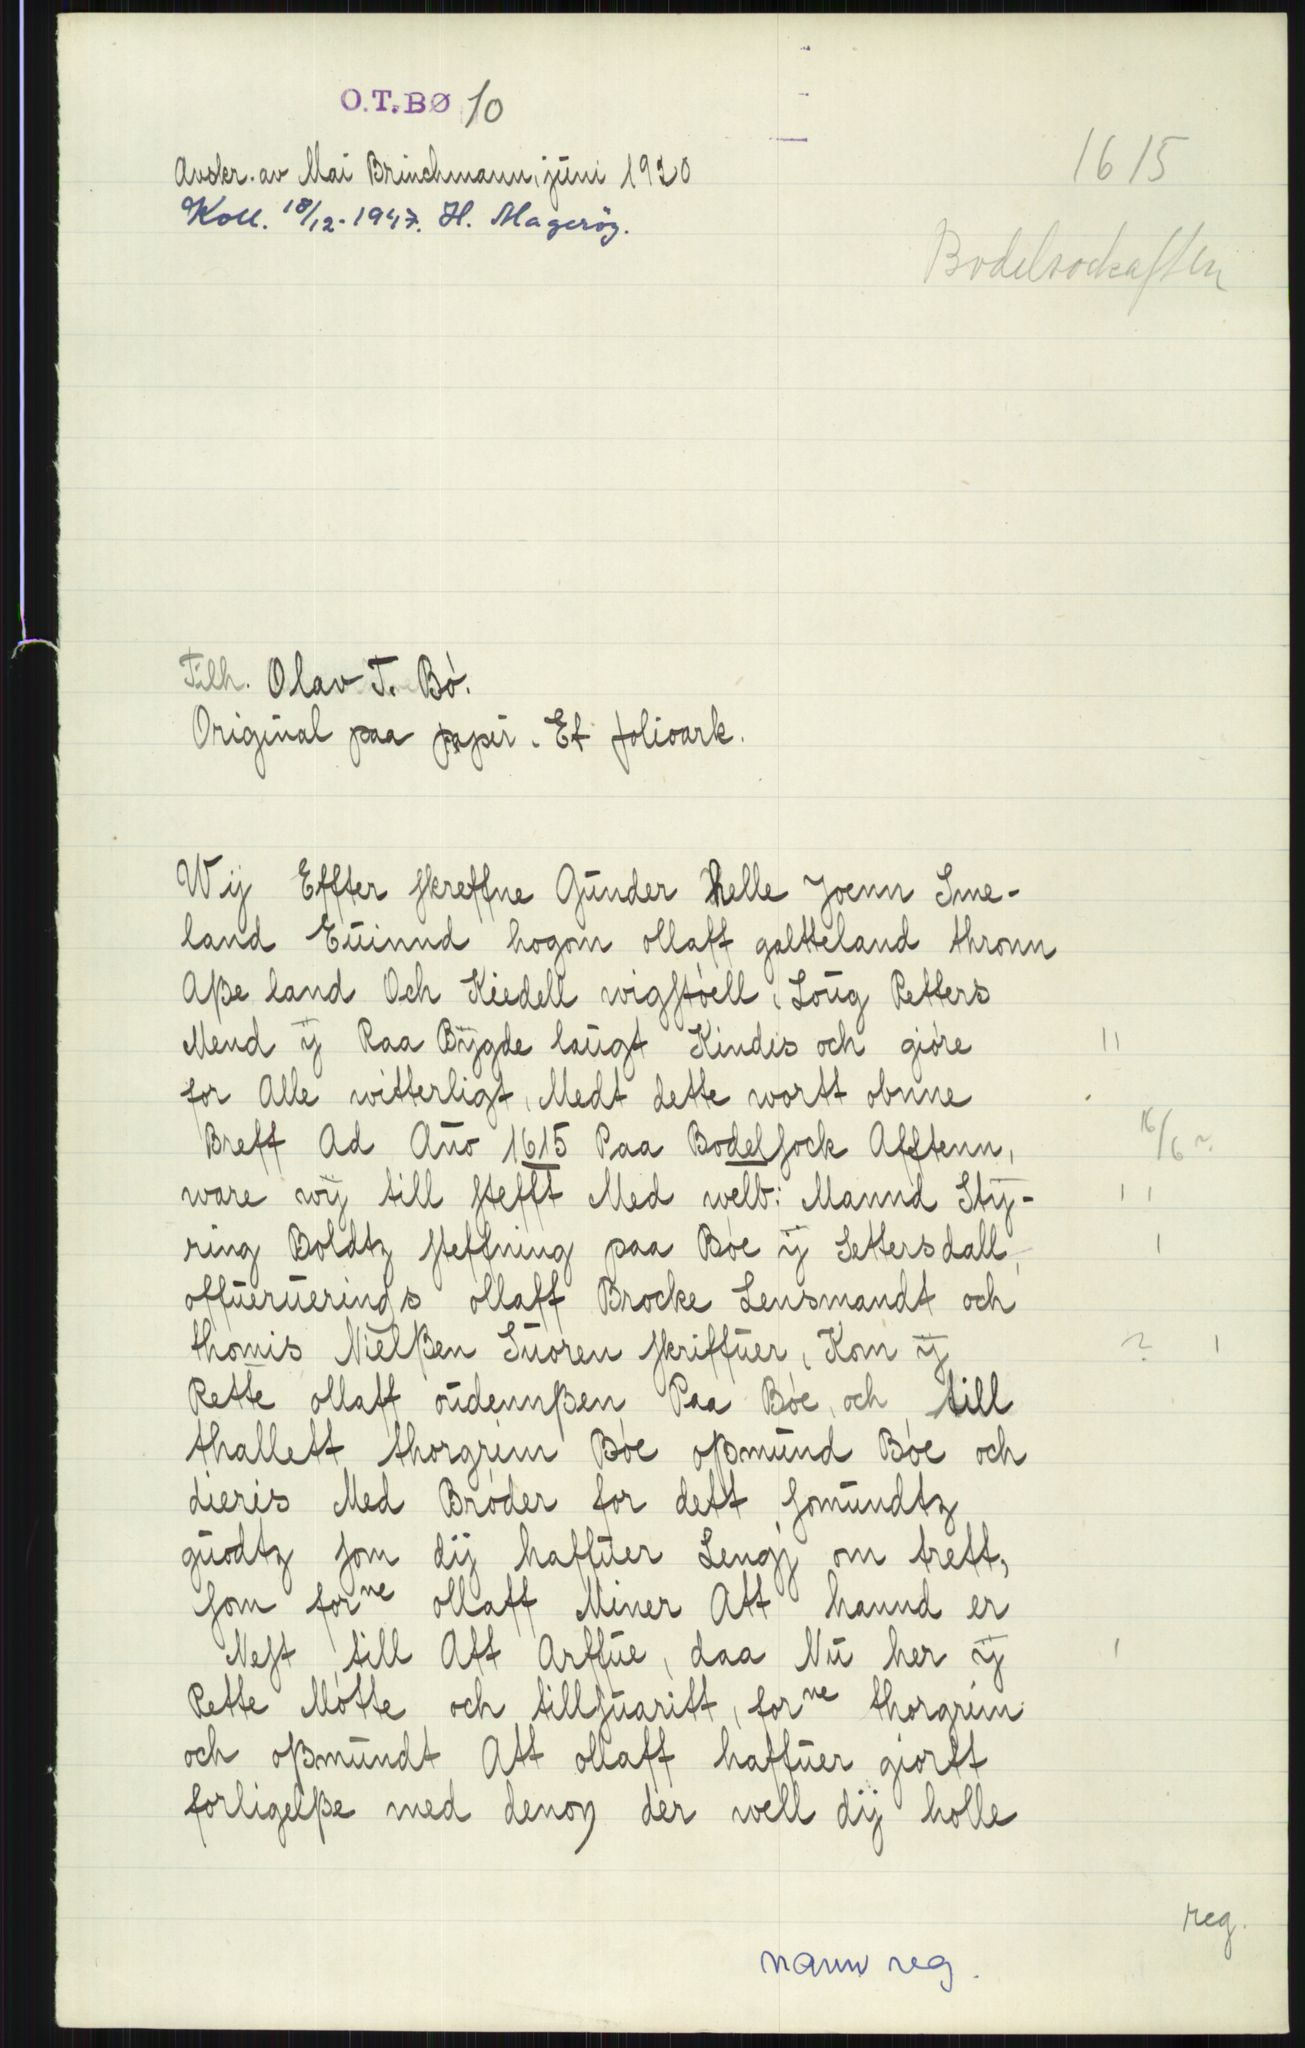 O.T.BØ 10
Avskr. av Mai Brinchmann, juni 1930
Koll. 18/12-1947. H. Magerøy.
1615
Bodelsockaften
Tilh. Olav T. Bø.
Original paa papir. Et folioark.
Wÿ Effter skreffne Gunder Helle Joenn Sme-
land Euinnd hogom ollaff galtteland thronn
Aße land Och Kiedell wigstøell, Loug Retters
Mend ÿ Raa Bÿgde laugt Kindis och giøre
for Alle witterligt, Medt dette wortt obnne
Breff Ad Ano 1615 Paa Bodelsock Afftenn,
16/6 ?
ware wÿ till stefft Med welb: Mannd Stÿ-
ring Boldtz steffning paa Bøe ÿ Settersdall,
offueruerinds ollaff Brocke Lensmandt och
thomis Nielßen Suoren skriffuer, Kom ÿ
?
Rette ollaff oudennßen Paa Bøe, och till
thallett thorgrim Bøe oßmund Bøe och
dieris Med Brøder for dett somundtz
guodtz som dÿ haffuer Lengj om trett,
som forne ollaff Miner Att hannd er
Nest till Att Arffue, daa Nu her ÿ
Rette Møtte och tillsuaritt, forne thorgrim
och oßmundt Att ollaff haffuer giortt
forligelße med denom der well dÿ holle
reg.
navn reg.